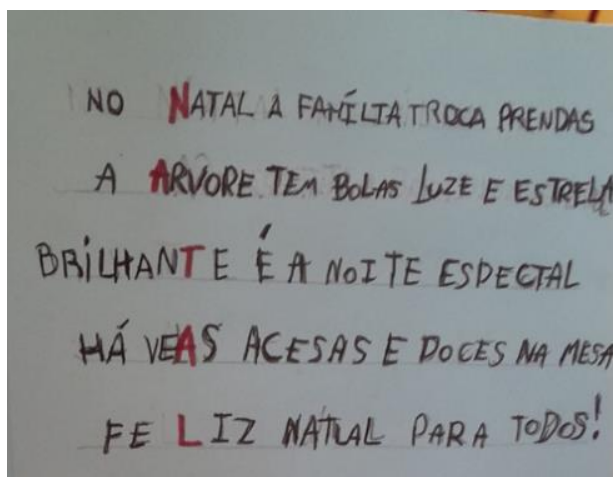 NO NATAL A FAMÍLIA TROCA PRENDAS
A ARVORE TEM BOLAS LUZE E ESTRELA
BRILHANTE É A NOITE ESPECIAL
HÁ VEAS ACESAS E DOCES NA MESA
FELIZ NATAL PARA TODOS!